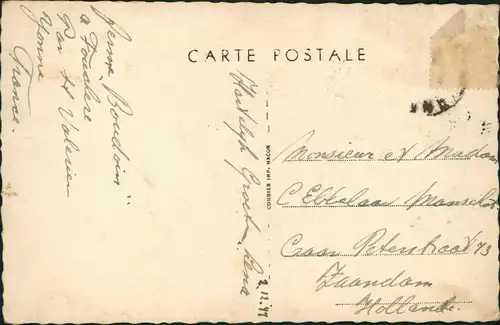 CARTE POSTALE
Ferme Boudoin"
a Fouchere
Par St Valerien
Yonne
France.
Hartelijk Groeten Lena
2.12.48
COMBIER IMP. MACON
Monsieur et Madam
C Ebbelaar
Czaar Peterstraat 43
Zaandam
Hollande.